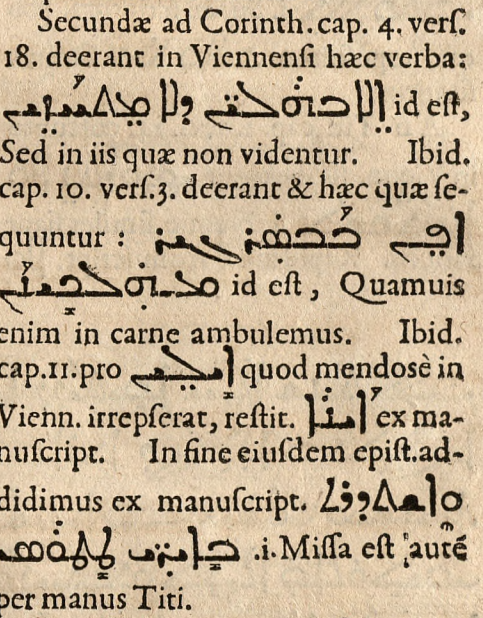 Secundæ ad Corinth. cap. 4. verſ.
18. deerant in Viennenſi hæc verba:
ܐܠܐ ܒܗܠܝܢ ܕܠܐ ܡܬܚܙܝܢ id eſt,
Sed in iis quæ non videntur. Ibid.
cap. 10. verſ.3. deerant & hæc quæ ſe-
quuntur : ܐܦܢ ܒܒܣܪ ܓܝܪ
ܡܗܠܟܝܢܢ id eſt, Quamuis
enim in carne ambulemus. Ibid.
cap.11.pro ܐܝܠܝܢ quod mendosè in
Vienn. irrepſerat, reſtit. ܐܝܢܐ ex ma-
nuſcript. In fine eiuſdem epiſt.ad-
didimus ex manuſcript. ܘܐܫܬܕܪܬ
ܒܐܝܕܝ ܛܛܘܣ .i. Miſſa eſt autē
per manus Titi.